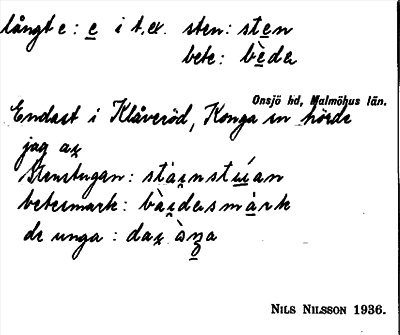 långt e : e̲ i t.ex. sten : ste̲n
bete : bè̲da
Onsjö hd, Malmöhus län.
Endast i Klåveröd, Konga sn hörde
jag aᶎ
Stenstugan : stàᶎnstú̲an
betesmark : bàᶎdasmà̲rk
de unga : daᶎ àn̲a
NILS NILSSON 1936.